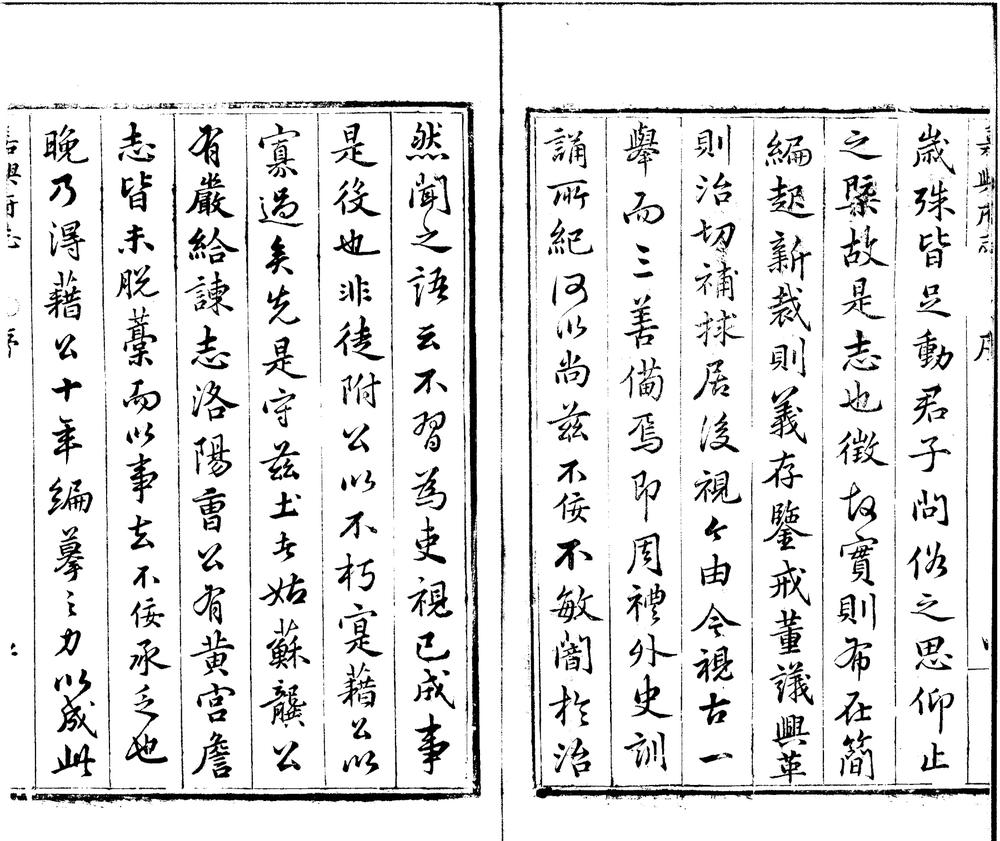 嘉興府志 序
歲殊皆足動君子問俗之思仰止
之槩故是志也徵故實則布在簡
編起新裁則義存鑒戒董議興革
則治切補捄居後視今由今視古一
舉而三善備焉即周禮外史訓
誦所紀何以尚茲不佞不敏闇於治
然聞之語云不習為吏視已成事
是役也非徒附公以不朽寔藉公以
寡過矣先是守茲土者姑蘇龔公
有嚴給諫志洛陽曹公有黄宮詹
志皆未脫藁而以事去不佞承乏也
晚乃得藉公十年編摹之力以成此
嘉興府志 序